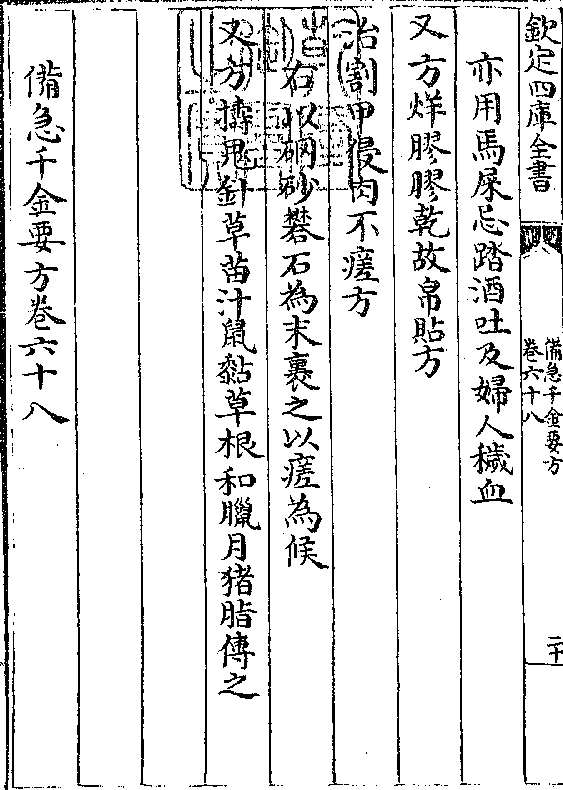 欽定四庫全書
備急千金要方
卷六十八
二十
亦用馬屎忌踏酒吐及婦人穢血
又方烊膠膠乾故帛貼方
治割甲侵肉不瘥方
右取硇砂礬石為末裹之以瘥為候
又方擣鬼針草苗汁鼠黏草根和臘月猪脂傅之
備急千金要方卷六十八